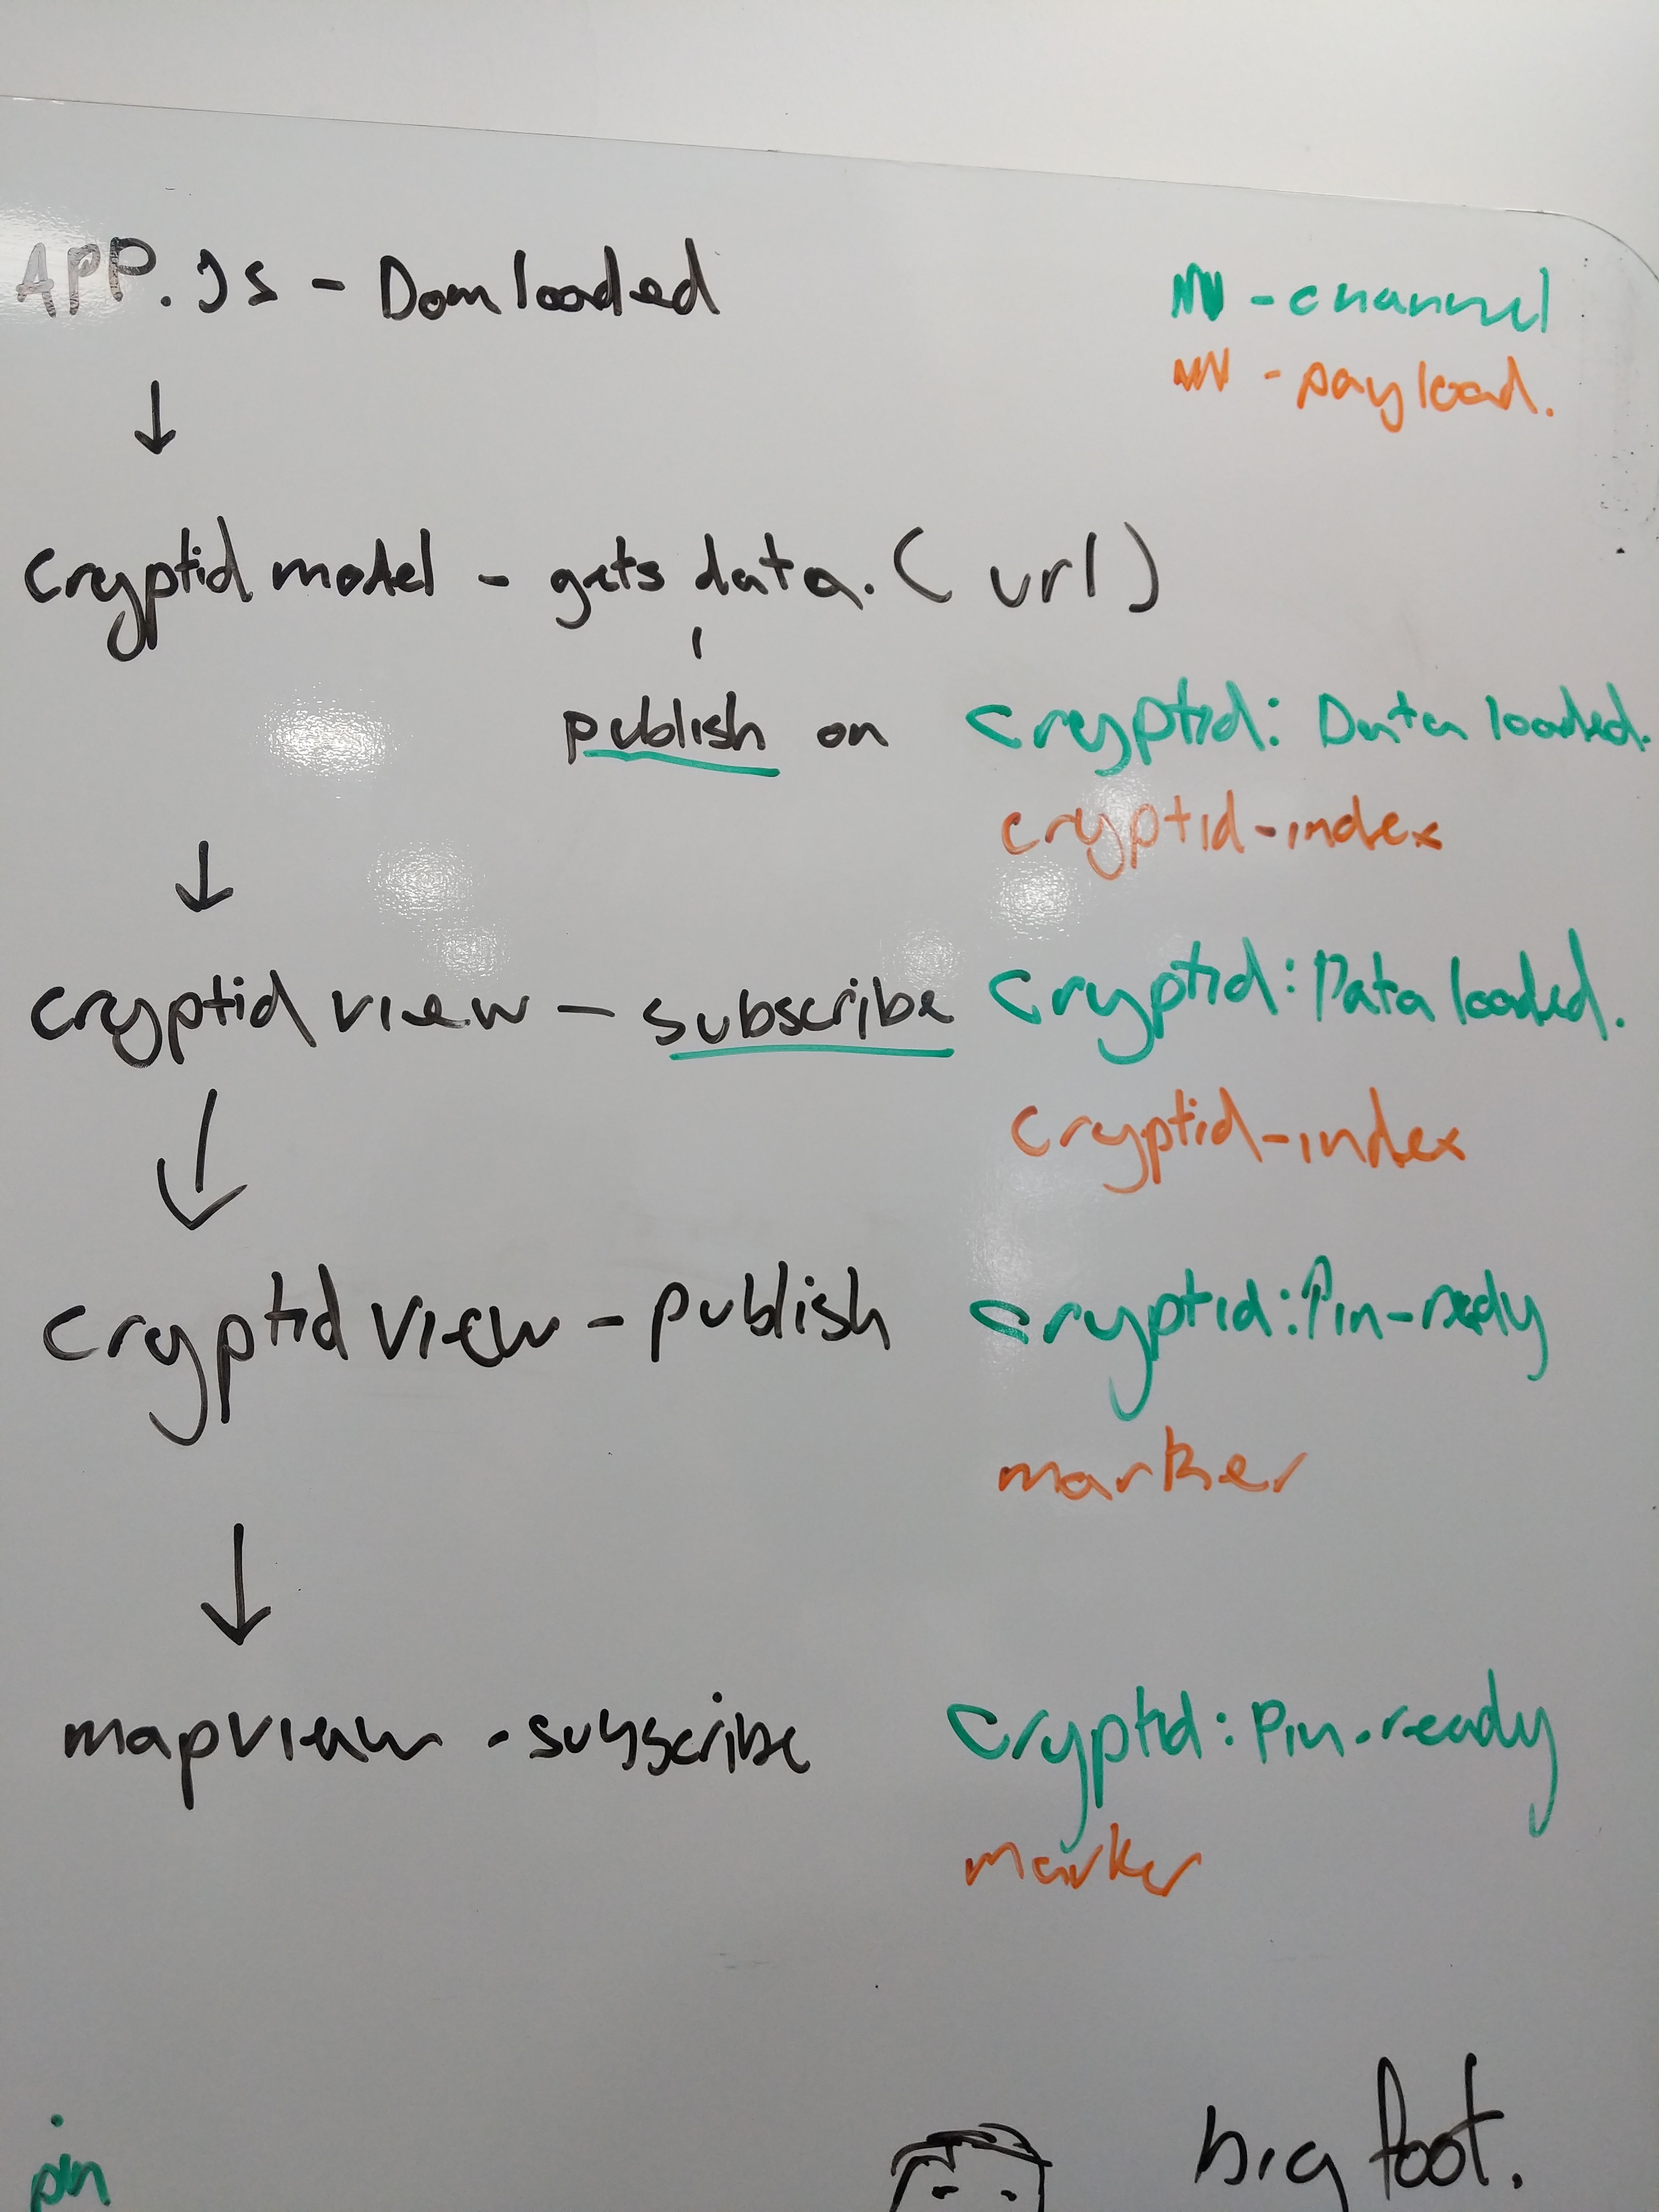 APP.JS - Dom loaded
- channel
- payload.
cryptid model - gets data. (url)
publish on cryptid: Data loaded.
cryptid-index
cryptid view - subscribe cryptid: Data loaded.
cryptid-index
cryptid view - publish cryptid: Pin-ready
marker
mapview - subscribe cryptid: Pin-ready
marker
big foot.
pin